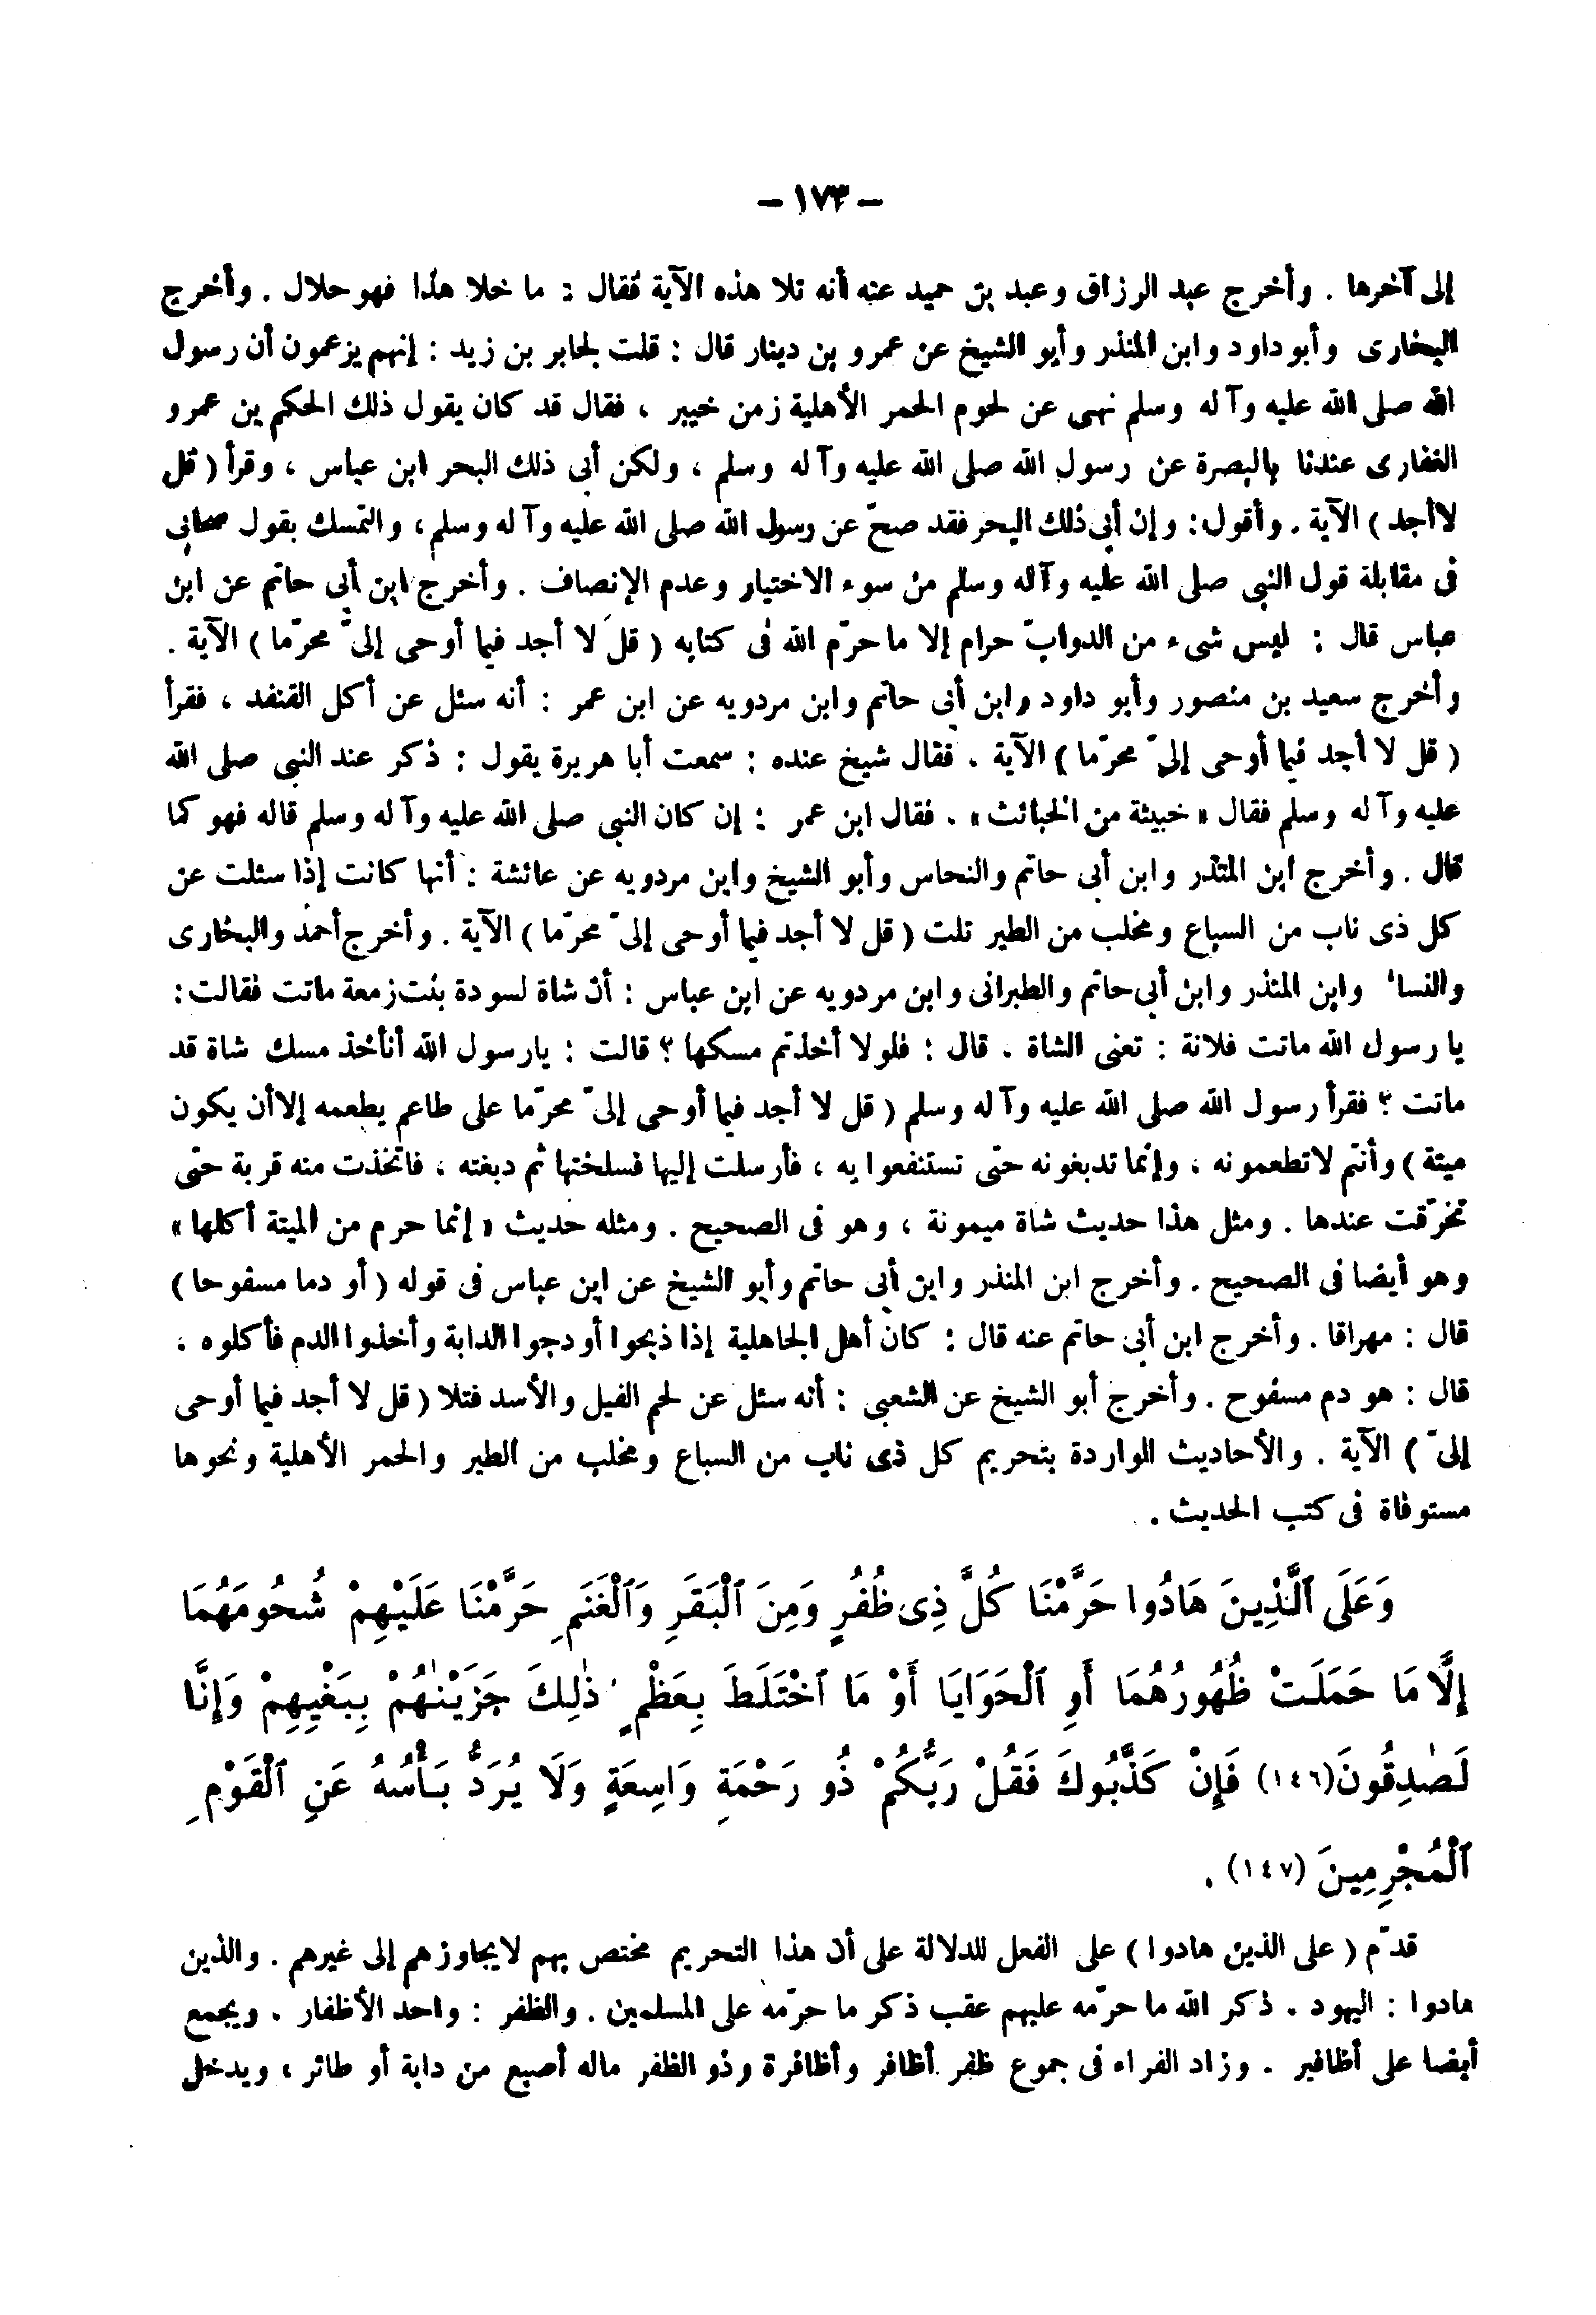 – ١٧٣ –
إلى آخرها . وأخرج عبد الرزاق وعبد بن حميد عنه أنه تلا هذه الآية فقال : ما خلا هذا فهو حلال . وأخرج
البخارى وأبو داود وابن المنذر وأبو الشيخ عن عمرو بن دينار قال : قلت لجابر بن زيد : إنهم يزعمون أن رسول
الله صلى الله عليه وآله وسلم نهى عن لحوم الحمر الأهلية زمن خيبر ، فقال قد كان يقول ذلك الحكم بن عمرو
الغفارى عندنا بالبصرة عن رسول الله صلى الله عليه وآله وسلم ، ولكن أبى ذلك البحر ابن عباس ، وقرأ ( قل
لا أجد ) الآية . وأقول : وإن أبى ذلك البحر فقد صحّ عن رسول الله صلى الله عليه وآله وسلم ، والتمسك بقول صحابى
فى مقابلة قول النبى صلى الله عليه وآله وسلم من سوء الاختيار وعدم الإنصاف . وأخرج ابن أبى حاتم عن ابن
عباس قال : ليس شىء من الدوابّ حرام إلا ما حرّم الله فى كتابه ( قل لا أجد فيما أوحى إلىّ محرّما ) الآية .
وأخرج سعيد بن منصور وأبو داود وابن أبى حاتم وابن مردويه عن ابن عمر : أنه سئل عن أكل القنفد ، فقرأ
( قل لا أجد فيما أوحى إلىّ محرّما ) الآية . فقال شيخ عنده : سمعت أبا هريرة يقول : ذكر عند النبى صلى الله
عليه وآله وسلم فقال « خبيثة من الخبائث » . فقال ابن عمر : إن كان النبى صلى الله عليه وآله وسلم قاله فهو كما
قال . وأخرج ابن المنذر وابن أبى حاتم والنحاس وأبو الشيخ وابن مردويه عن عائشة : أنها كانت إذا سئلت عن
كل ذى ناب من السباع ومخلب من الطير تلت ( قل لا أجد فيما أوحى إلىّ محرّما ) الآية . وأخرج أحمد والبخارى
والنسا وابن المنذر وابن أبى حاتم والطبرانى وابن مردويه عن ابن عباس : أن شاة لسودة بنت زمعة ماتت فقالت :
يا رسول الله ماتت فلانة : تعنى الشاة . قال : فلولا أخذتم مسكها ؟ قالت : يارسول الله أنأخذ مسك شاة قد
ماتت ؟ فقرأ رسول الله صلى الله عليه وآله وسلم ( قل لا أجد فيما أوحى إلىّ محرّما على طاعم يطعمه إلا أن يكون
ميتة ) وأنتم لا تطعمونه ، وإنما تدبغونه حتى تستنفعوا به ، فأرسلت إليها فسلختها ثم دبغته ، فاتخذت منه قربة حتى
تخرّقت عندها . ومثل هذا حديث شاة ميمونة ، وهو فى الصحيح . ومثله حديث « إنما حرم من الميتة أكلها »
وهو أيضا فى الصحيح . وأخرج ابن المنذر وابن أبى حاتم وأبو الشيخ عن ابن عباس فى قوله ( أو دما مسفوحا )
قال : مهراقا . وأخرج ابن أبى حاتم عنه قال : كان أهل الجاهلية إذا ذبحوا أودجوا الدابة وأخذوا الدم فأكلوه ،
قال : هو دم مسفوح . وأخرج أبو الشيخ عن الشعبى : أنه سئل عن لحم الفيل والأسد فتلا ( قل لا أجد فيما أوحى
إلىّ ) الآية . والأحاديث الواردة بتحريم كل ذى ناب من السباع ومخلب من الطير والحمر الأهلية ونحوها
مستوفاة فى كتب الحديث .
وَعَلَى ٱلَّذِينَ هَادُوا حَرَّمْنَا كُلَّ ذِى ظُفُرٍ وَمِنَ ٱلْبَقَرِ وَٱلْغَنَمِ حَرَّمْنَا عَلَيْهِمْ شُحُومَهُمَا
إِلَّا مَا حَمَلَتْ ظُهُورُهُمَا أَوِ ٱلْحَوَايَا أَوْ مَا ٱخْتَلَطَ بِعَظْمٍ ذٰلِكَ جَزَيْنٰهُمْ بِبَغْيِهِمْ وَإِنَّا
لَصٰدِقُونَ (١٤٦) فَإِنْ كَذَّبُوكَ فَقُلْ رَبُّكُمْ ذُو رَحْمَةٍ وَاسِعَةٍ وَلَا يُرَدُّ بَأْسُهُ عَنِ ٱلْقَوْمِ
ٱلْمُجْرِمِينَ (١٤٧) .
قدّم ( على الذين هادوا ) على الفعل للدلالة على أن هذا التحريم مختص بهم لا يجاوزهم إلى غيرهم . والذين
هادوا : اليهود . ذكر الله ما حرّمه عليهم عقب ذكر ما حرّمه على المسلمين . والظفر : واحد الأظفار . ويجمع
أيضا على أظافير . وزاد الفراء فى جموع ظفر أظافر وأظافرة وذو الظفر ماله أصبع من دابة أو طائر ، ويدخل